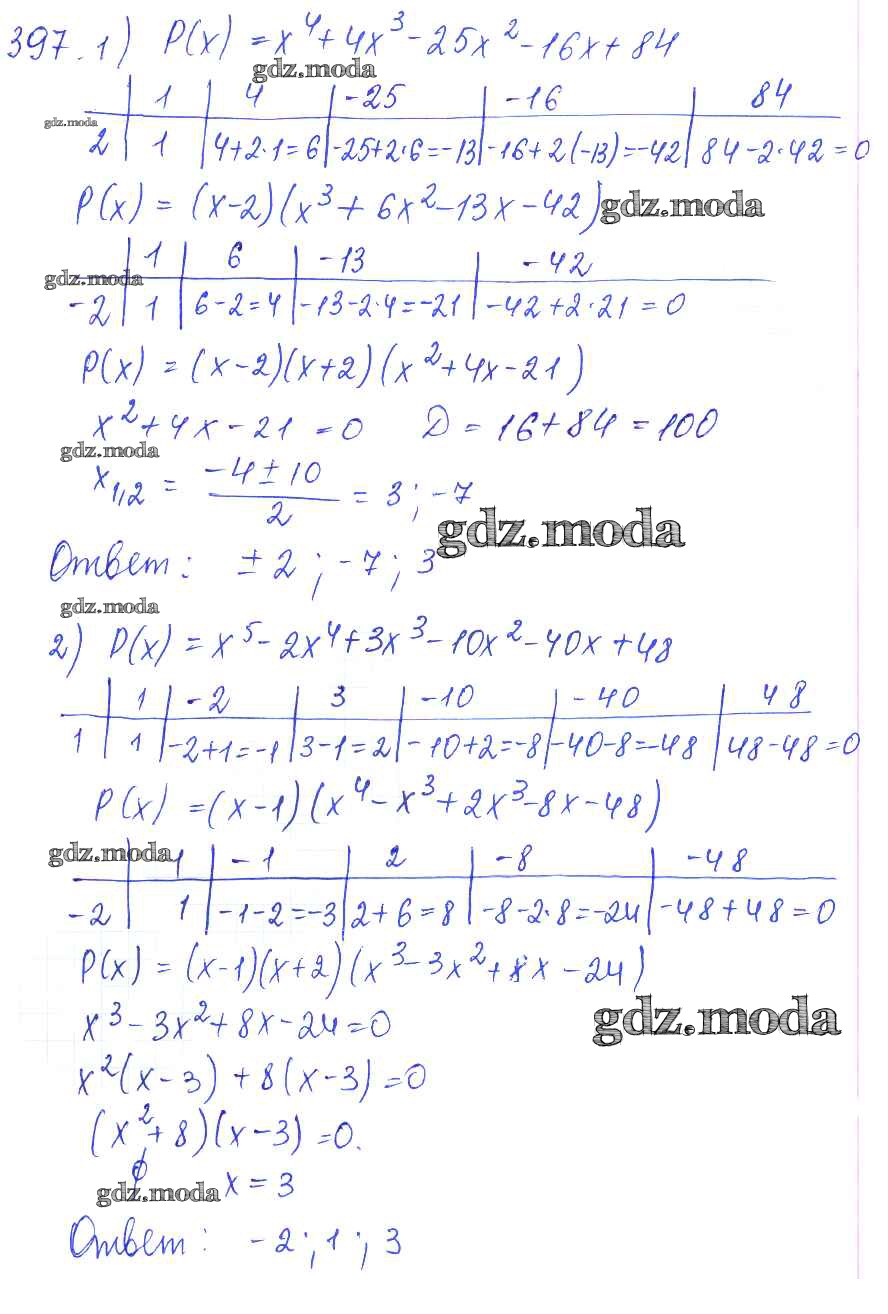 397. 1) P(x) = x⁴ + 4x³ - 25x² - 16x + 84
gdz.moda
1 | 4 | -25 | -16 | 84
gdz.moda
2 | 1 | 4+2·1=6 | -25+2·6=-13 | -16+2(-13)=-42 | 84-2·42=0
P(x) = (x-2)(x³+6x²-13x-42) gdz.moda
1 | 6 | -13 | -42
gdz.moda
-2 | 1 | 6-2=4 | -13-2·4=-21 | -42+2·21=0
P(x) = (x-2)(x+2)(x²+4x-21)
x²+4x-21=0 D=16+84=100
gdz.moda
x₁,₂ = (-4±10)/2 = 3; -7
gdz.moda
Ответ: ±2; -7; 3
gdz.moda
2) P(x) = x⁵-2x⁴+3x³-10x²-40x+48
1 | -2 | 3 | -10 | -40 | 48
1 | 1 | -2+1=-1 | 3-1=2 | -10+2=-8 | -40-8=-48 | 48-48=0
P(x) = (x-1)(x⁴-x³+2x³-8x-48)
gdz.moda 1 | -1 | 2 | -8 | -48
-2 | 1 | -1-2=-3 | 2+6=8 | -8-2·8=-24 | -48+48=0
P(x) = (x-1)(x+2)(x³-3x²+8x-24)
x³-3x²+8x-24=0
gdz.moda
x²(x-3)+8(x-3)=0
(x²+8)(x-3)=0.
ϕ
gdz.moda x=3
Ответ: -2; 1; 3